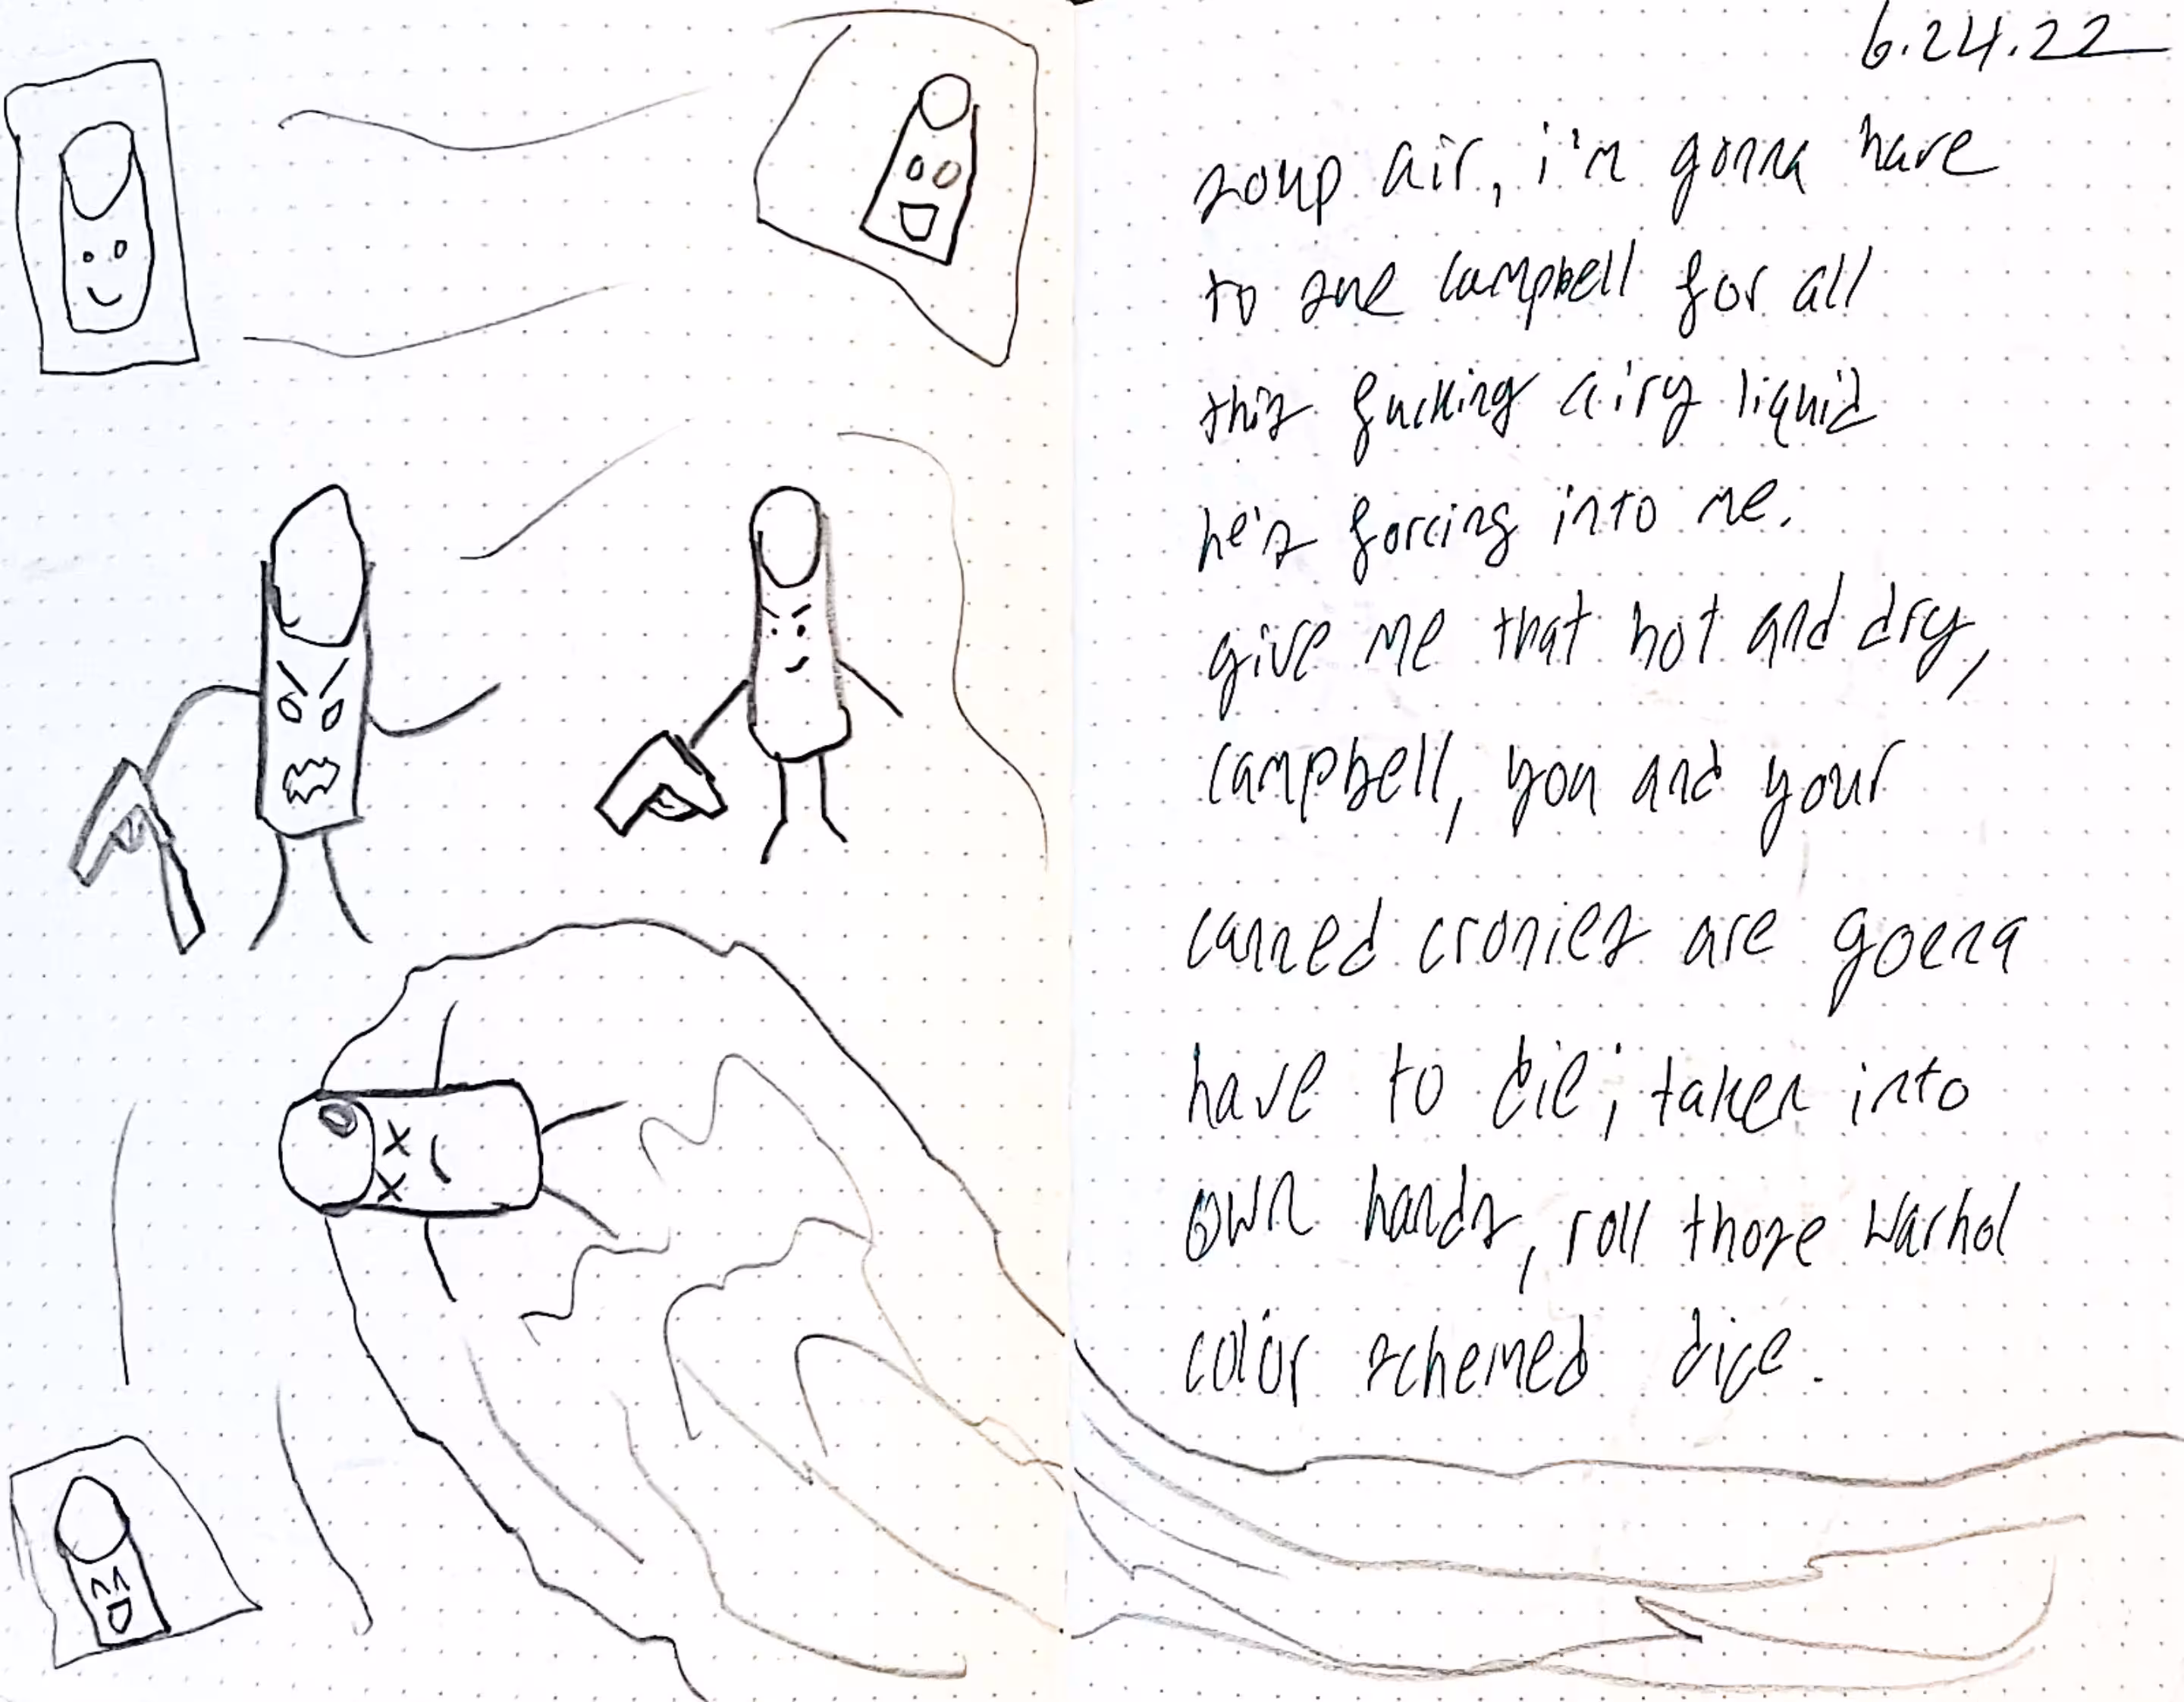 6.24.22
soup air, i'm gonna have
to sue campbell for all
this fucking airy liquid
he's forcing into me.
give me that hot and dry,
campbell, you and your
canned cronies are goenna
have to die; taken into
own hands, roll those Warhol
color schemed dice.